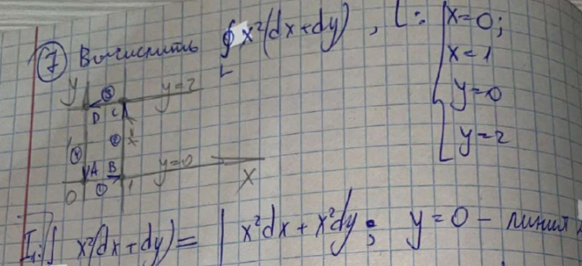 ⑦ Вычислить ∮_L x²(dx+dy), L: { x=0;
x=1
y=0
y=2
y
y=2
③
D C
④ ②
A B
①
y=0
0 1 X
I₁: ∫ x²(dx+dy) = | x²dx + x²dy; y=0 – линия